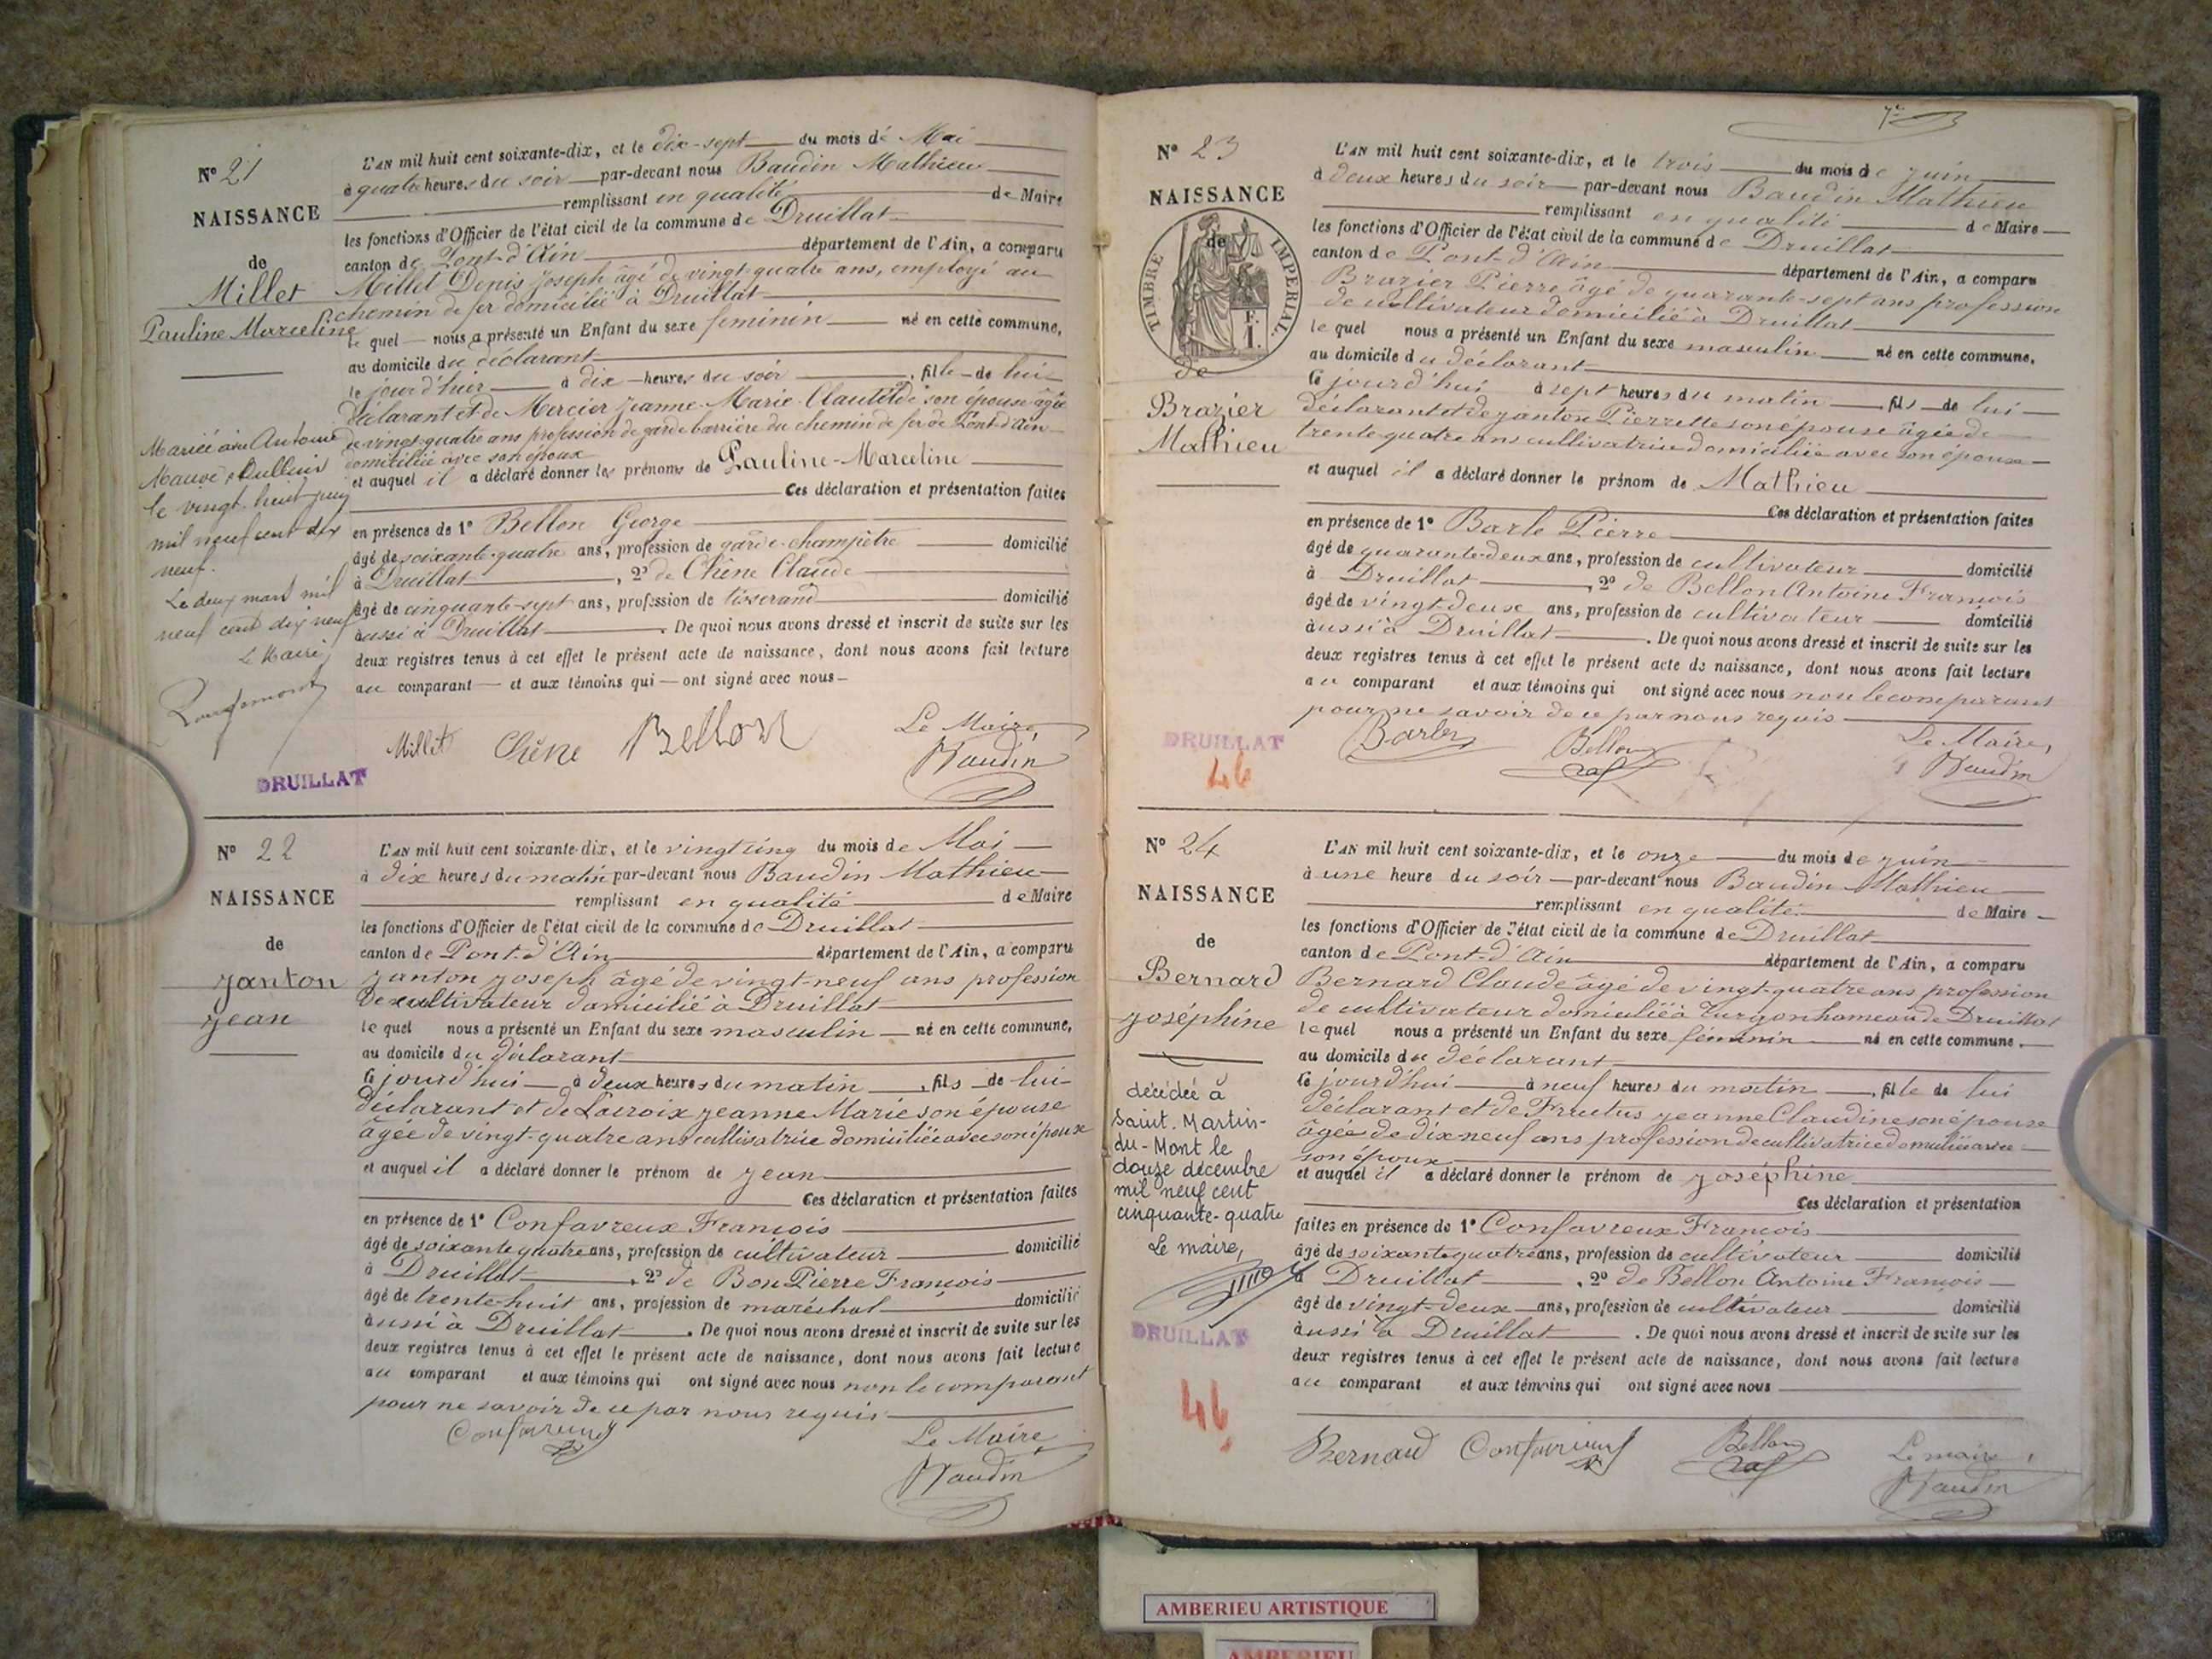 N° 21
NAISSANCE
de
Millet
Pauline Marceline
Mariée avec Antoine
le vingt huit
mil neuf cent dix
neuf.
Le deux mars mil
neuf cent dix neuf
Le Maire
L'AN mil huit cent soixante-dix, et le dix-sept du mois de Mai
à quatre heures du soir par-devant nous Baudin Mathieu
remplissant en qualité de Maire
les fonctions d'Officier de l'état civil de la commune de Druillat
canton de Pont-d'Ain département de l'Ain, a comparu
Millet Denis Joseph âgé de vingt-quatre ans, employé au
chemin de fer domicilié à Druillat
le quel nous a présenté un Enfant du sexe féminin né en cette commune,
au domicile du déclarant
le jour d'hier à dix heures du soir, fille de lui
déclarant et de Mercier Jeanne-Marie-Clautilde son épouse âgée
de vingt-quatre ans profession de garde barrière du chemin de fer de Pont-d'Ain
domiciliée avec son époux
et auquel il a déclaré donner les prénoms de Pauline-Marceline
Ces déclaration et présentation faites
en présence de 1° Bellon George
âgé de soixante-quatre ans, profession de garde-champêtre domicilié
à Druillat, 2° de Chêne Claude
âgé de cinquante-sept ans, profession de tisserand domicilié
aussi à Druillat. De quoi nous avons dressé et inscrit de suite sur les
deux registres tenus à cet effet le présent acte de naissance, dont nous avons fait lecture
au comparant et aux témoins qui ont signé avec nous
Millet Chêne Bellon Le Maire,
Baudin
DRUILLAT
N° 22
NAISSANCE
de
Janton
Jean
L'AN mil huit cent soixante-dix, et le vingt cinq du mois de Mai
à dix heures du matin par-devant nous Baudin Mathieu
remplissant en qualité de Maire
les fonctions d'Officier de l'état civil de la commune de Druillat
canton de Pont-d'Ain département de l'Ain, a comparu
Janton Joseph âgé de vingt-neuf ans profession
de cultivateur domicilié à Druillat
le quel nous a présenté un Enfant du sexe masculin né en cette commune,
au domicile du déclarant
ce jourd'hui à deux heures du matin, fils de lui
déclarant et de Lacroix Jeanne Marie son épouse
âgée de vingt-quatre ans cultivatrice domiciliée avec son époux
et auquel il a déclaré donner le prénom de Jean
Ces déclaration et présentation faites
en présence de 1° Confavreux François
âgé de soixante quatre ans, profession de cultivateur domicilié
à Druillat, 2° de Bon Pierre François
âgé de trente-huit ans, profession de maréchal domicilié
aussi à Druillat. De quoi nous avons dressé et inscrit de suite sur les
deux registres tenus à cet effet le présent acte de naissance, dont nous avons fait lecture
au comparant et aux témoins qui ont signé avec nous non le comparant
pour ne savoir de ce par nous requis
Confavreux Le Maire
Baudin
N° 23
NAISSANCE
de
TIMBRE IMPERIAL
F.
1.
de
Brazier
Mathieu
L'AN mil huit cent soixante-dix, et le trois du mois de Juin
à deux heures du soir par-devant nous Baudin Mathieu
remplissant en qualité de Maire
les fonctions d'Officier de l'état civil de la commune de Druillat
canton de Pont-d'Ain département de l'Ain, a comparu
Brazier Pierre âgé de quarante-sept ans profession
de cultivateur domicilié à Druillat
le quel nous a présenté un Enfant du sexe masculin né en cette commune,
au domicile du déclarant
ce jourd'hui à sept heures du matin, fils de lui
déclarant et de Janton Pierrette son épouse âgée de
trente-quatre ans cultivatrice domiciliée avec son époux
et auquel il a déclaré donner le prénom de Mathieu
Ces déclaration et présentation faites
en présence de 1° Barle Pierre
âgé de quarante-deux ans, profession de cultivateur domicilié
à Druillat, 2° de Bellon Antoine François
âgé de vingt-deux ans, profession de cultivateur domicilié
aussi à Druillat. De quoi nous avons dressé et inscrit de suite sur les
deux registres tenus à cet effet le présent acte de naissance, dont nous avons fait lecture
au comparant et aux témoins qui ont signé avec nous non le comparant
pour ne savoir de ce par nous requis
Bellon Le Maire,
Baudin
DRUILLAT
46
N° 24
NAISSANCE
de
Bernard
Joséphine
décédée à
Saint-Martin-
du-Mont le
douze décembre
mil neuf cent
cinquante-quatre
Le maire,
DRUILLAT
46
L'AN mil huit cent soixante-dix, et le onze du mois de Juin
à une heure du soir par-devant nous Baudin Mathieu
remplissant en qualité de Maire
les fonctions d'Officier de l'état civil de la commune de Druillat
canton de Pont-d'Ain département de l'Ain, a comparu
Bernard Claude âgé de vingt-quatre ans profession
de cultivateur domicilié à Turgon hameau de Druillat
le quel nous a présenté un Enfant du sexe féminin né en cette commune.
au domicile du déclarant
ce jourd'hui à neuf heures du matin, fille de lui
déclarant et de Frutus Jeanne Claudine son épouse
âgée de dix neuf ans profession de cultivatrice domiciliée avec
son époux
et auquel il a déclaré donner le prénom de Joséphine
Ces déclaration et présentation
faites en présence de 1° Confavreux François
âgé de soixante quatre ans, profession de cultivateur domicilié
à Druillat, 2° de Bellon Antoine François
âgé de vingt-deux ans, profession de cultivateur domicilié
aussi à Druillat. De quoi nous avons dressé et inscrit de suite sur les
deux registres tenus à cet effet le présent acte de naissance, dont nous avons fait lecture
au comparant et aux témoins qui ont signé avec nous
Bernard Confavreux Bellon Le maire,
Baudin
AMBERIEU ARTISTIQUE
AMBERIEU